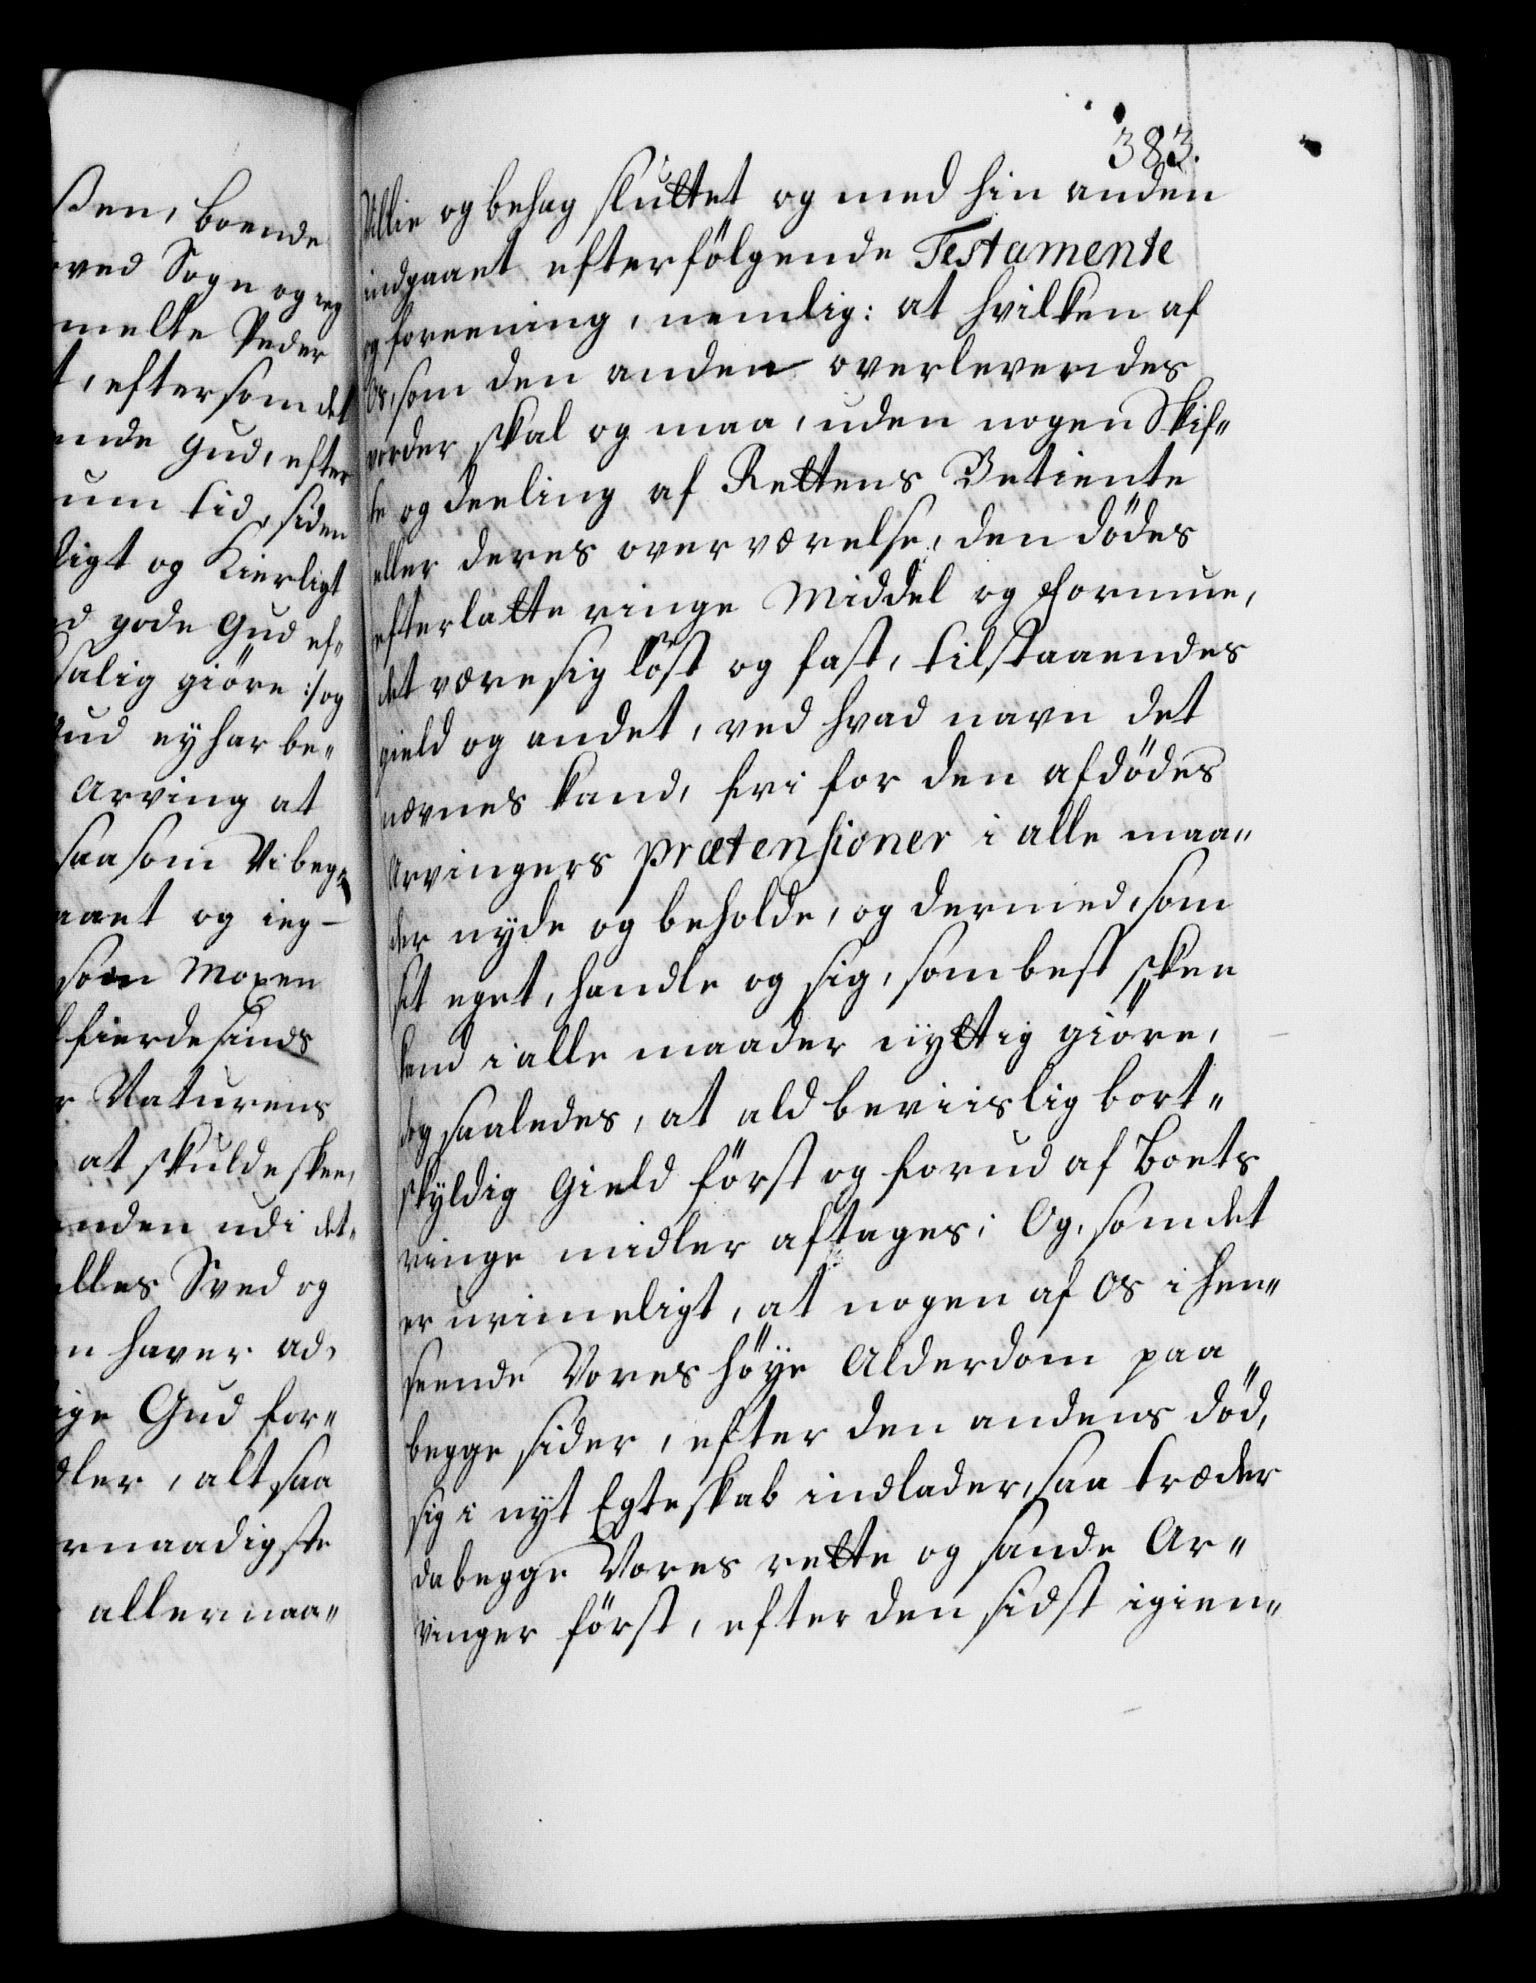 ßen, boende
oved Sogn og jeg
melte Peder
t, efter som det
ende Gud, efter
rum tid, siden
ligt og Kierligt
d gode Gud ef„
salig giöre :/ og
Gud ey har be„
Arving at
saasom Vi beg„
aaet og jeg
som Moxen
fierdesinds
r Naturens
at skulde skee,
nden udi det„
lles Sved og
n haver ad„
ige Gud for„
dler, alt saa
rnaadigste
allernaa„
383.
Villie og behag sluttet og med hin anden
indgaaet efterfölgende Testamente
og foreening, nemlig: at hvilken af
Os, som den anden overlevendes
vorder skal og maa, uden nogen Skif„
te og deeling af Rettens Betiente
eller deres overværelse, den dödes
efterlatte ringe Middel og Formue,
det være sig löst og fast, tilstaaendes
gield og andet, ved hvad navn det
nævnes kand, fri for den afdödes
Arvingers prætensioner i alle maa„
der nyde og beholde, og dermed, som
sit eget, handle og sig, som best skee
kand i alle maader nyttig giöre,
dog saaledes, at ald beviislig bort„
skyldig Gield först og forud af Boets
ringe midler aftages; Og, som det
er urimeligt, at nogen af Os i hen„
seende Vores höye Alderdom paa
begge sider, efter den andens död,
sig i nyt Egteskab indlader, saa træder
da begge Vores rette og sande Ar„
vinger först, efter den sidst igien„